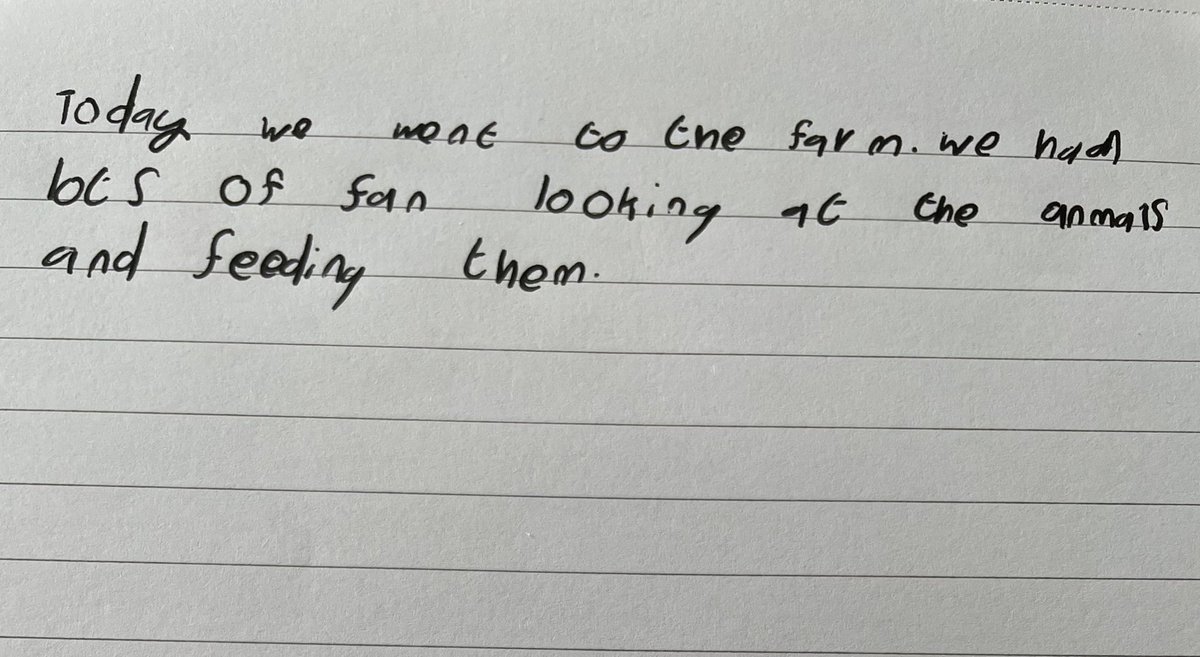 Today we went to the farm. we had
lots of fun looking at the anmals
and feeding them.